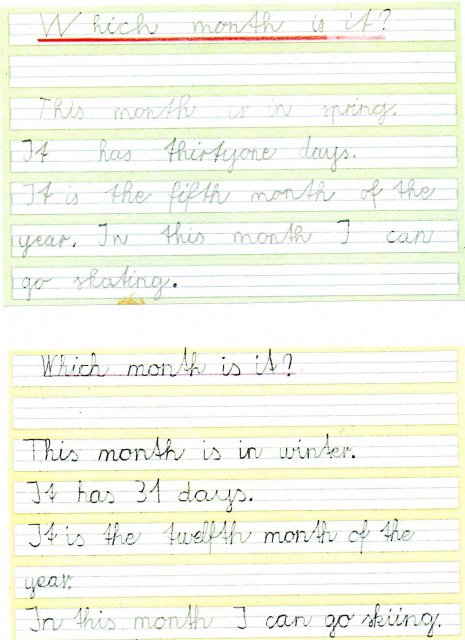 Which month is it?
This month is in spring.
It has thirtyone days.
It is the fifth month of the
year. In this month I can
go skating.
Which month is it?
This month is in winter.
It has 31 days.
It is the twelfth month of the
year.
In this month I can go skiing.